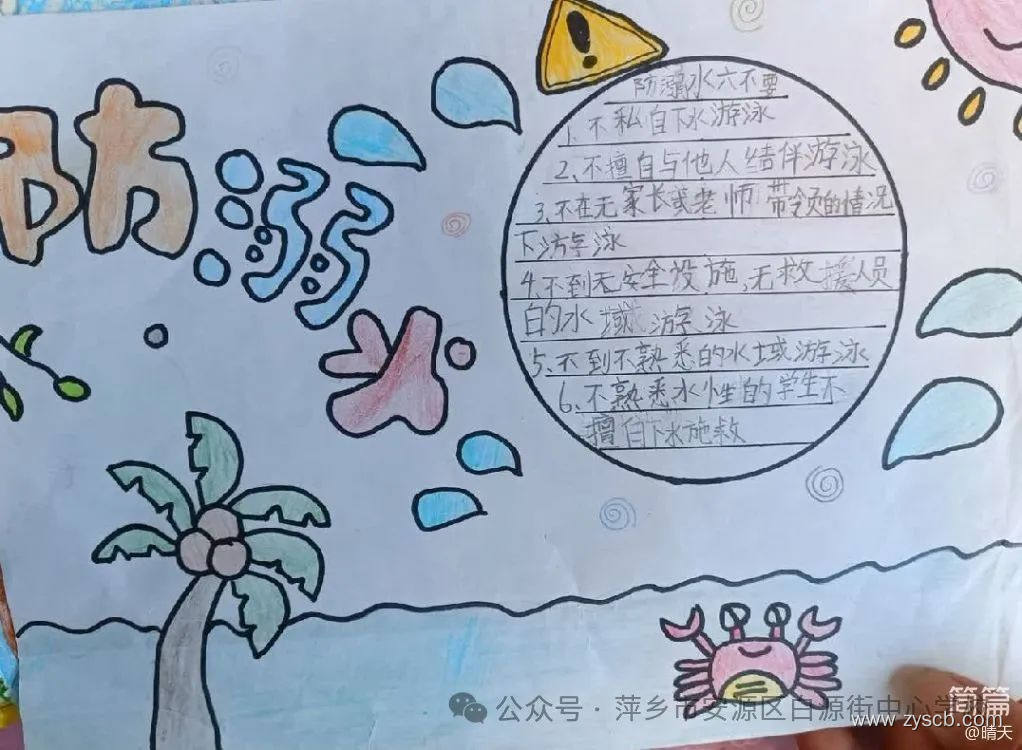 防溺水
防溺水六不要
1、不私自下水游泳
2、不擅自与他人结伴游泳
3、不在无家长或老师带领的情况
下游泳
4、不到无安全设施,无救援人员
的水域游泳
5、不到不熟悉的水域游泳
6、不熟悉水性的学生不
擅自下水施救
公众号·萍乡市安源区白源街中心学校
简篇
www.zyscb.com
@晴天